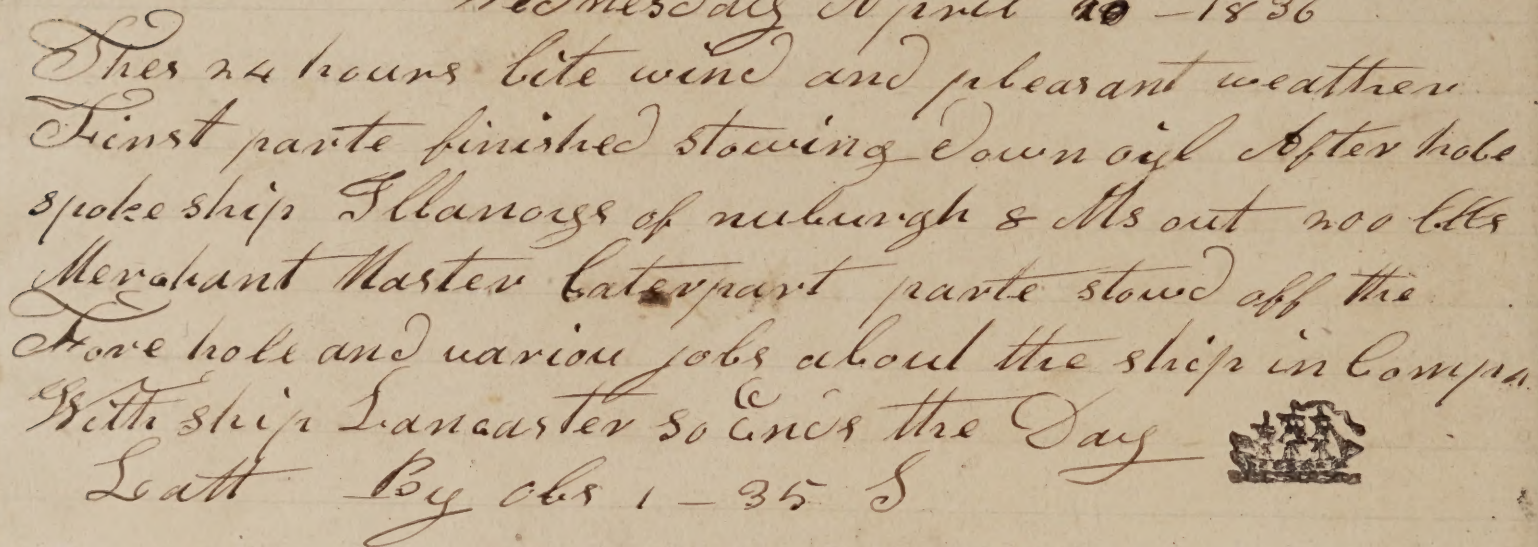 Wednesday April 20 - 1836
Thes 24 hours lite wind and pleasant weather
First parte finished stowing down oyl After hole
spoke ship Illanoyes of nuburgh 8 Ms out 200 bbls
Merchant Master Laterpart parte stowd off the
Fore hole and variou jobs about the ship in Compa
With ship Lancaster so Ends the Day
Latt By obs 1 - 35 S